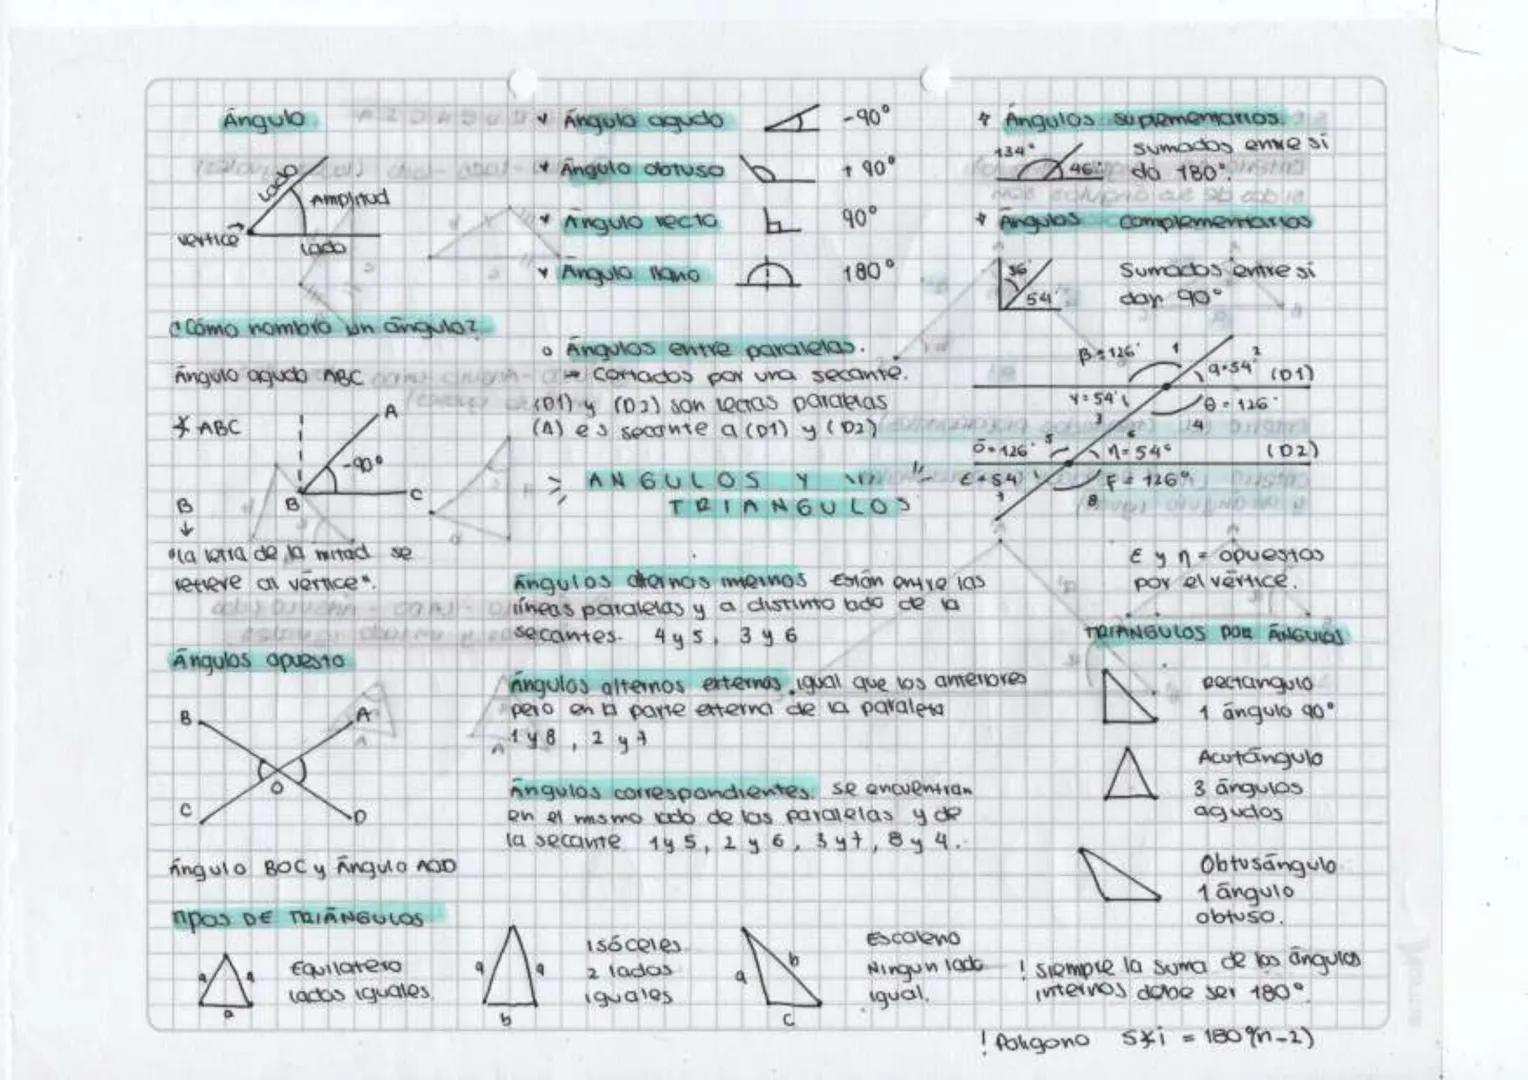 Ángulo
lado
Amplitud
vértice
lado
¿Cómo nombro un ángulo?
Ángulo agudo ABC
* ABC
A
-90°
B
C
B
↓
"la letra de la mitad se
refiere al vértice".
Ángulos opuesto
B
A
O
C
D
Ángulo BOC y Ángulo AOD
TIPOS DE TRIÁNGULOS
a
a
a
Equilatero
lados iguales
a
a
b
Isóceles
2 lados
iguales
a
b
c
Escaleno
Ningun lado
igual.
Ángulo agudo
-90°
Ángulo obtuso
+90°
Ángulo recto
90°
Ángulo llano
180°
Ángulos entre paralelas.
→ Cortados por una secante.
(D1) y (D2) son rectas paralelas
(A) es secante a (D1) y (D2)
ANGULOS Y
TRIANGULOS
Ángulos alternos internos Están entre las
líneas paralelas y a distinto lado de la
secantes. 4 y 5, 3 y 6
Ángulos alternos externos igual que los anteriores
pero en la parte externa de la paralela
1 y 8, 2 y 7
Ángulos correspondientes. se encuentran
en el mismo lado de las paralelas y de
la secante 1 y 5, 2 y 6, 3 y 7, 8 y 4.
Ángulos suplementarios.
134°
46°
sumados entre sí
da 180°.
Ángulos complementarios
36°
54°
Sumados entre si
dan 90°
β=126°
1
2
α=54°
(D1)
γ=54°
3
θ=126°
4
δ=126°
5
6
η=54°
(D2)
ε=54°
7
F=126°
8
ε y η = opuestos
por el vértice.
TRIÁNGULOS POR ÁNGULOS
Rectangulo
1 ángulo 90°
Acutángulo
3 ángulos
agudos
Obtusángulo
1 ángulo
obtuso.
! siempre la suma de los ángulos
internos debe ser 180°
! Poligono S*i = 180°(n-2)